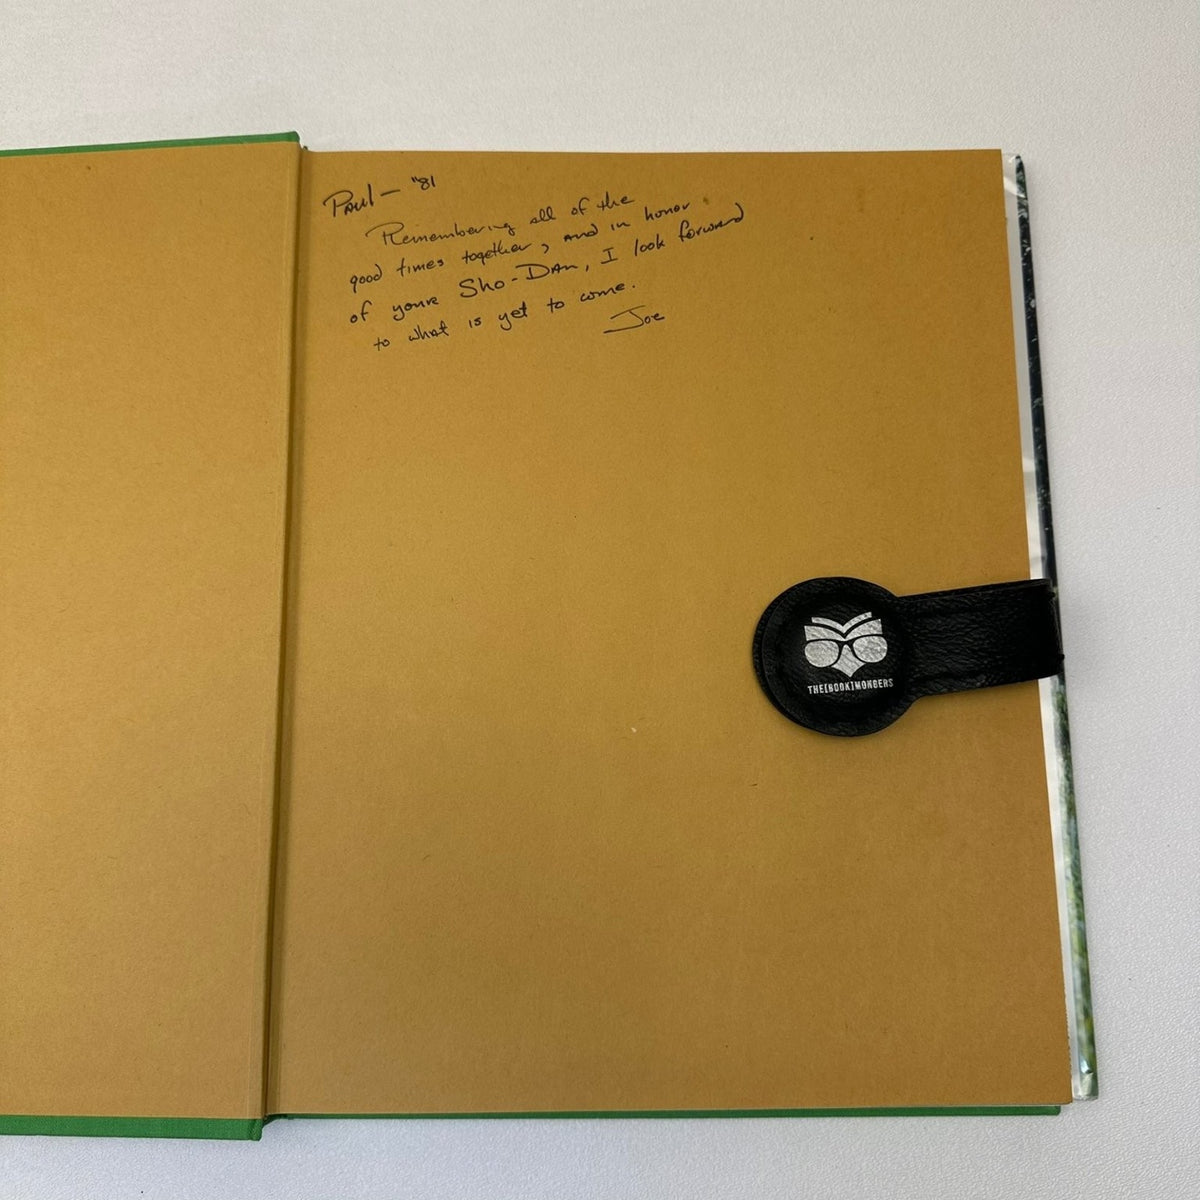 Paul — "81
Remembering all of the
good times together, and in honor
of your Sho-Dan, I look forward
to what is yet to come.
Joe
THE[BOOK]MONGERS